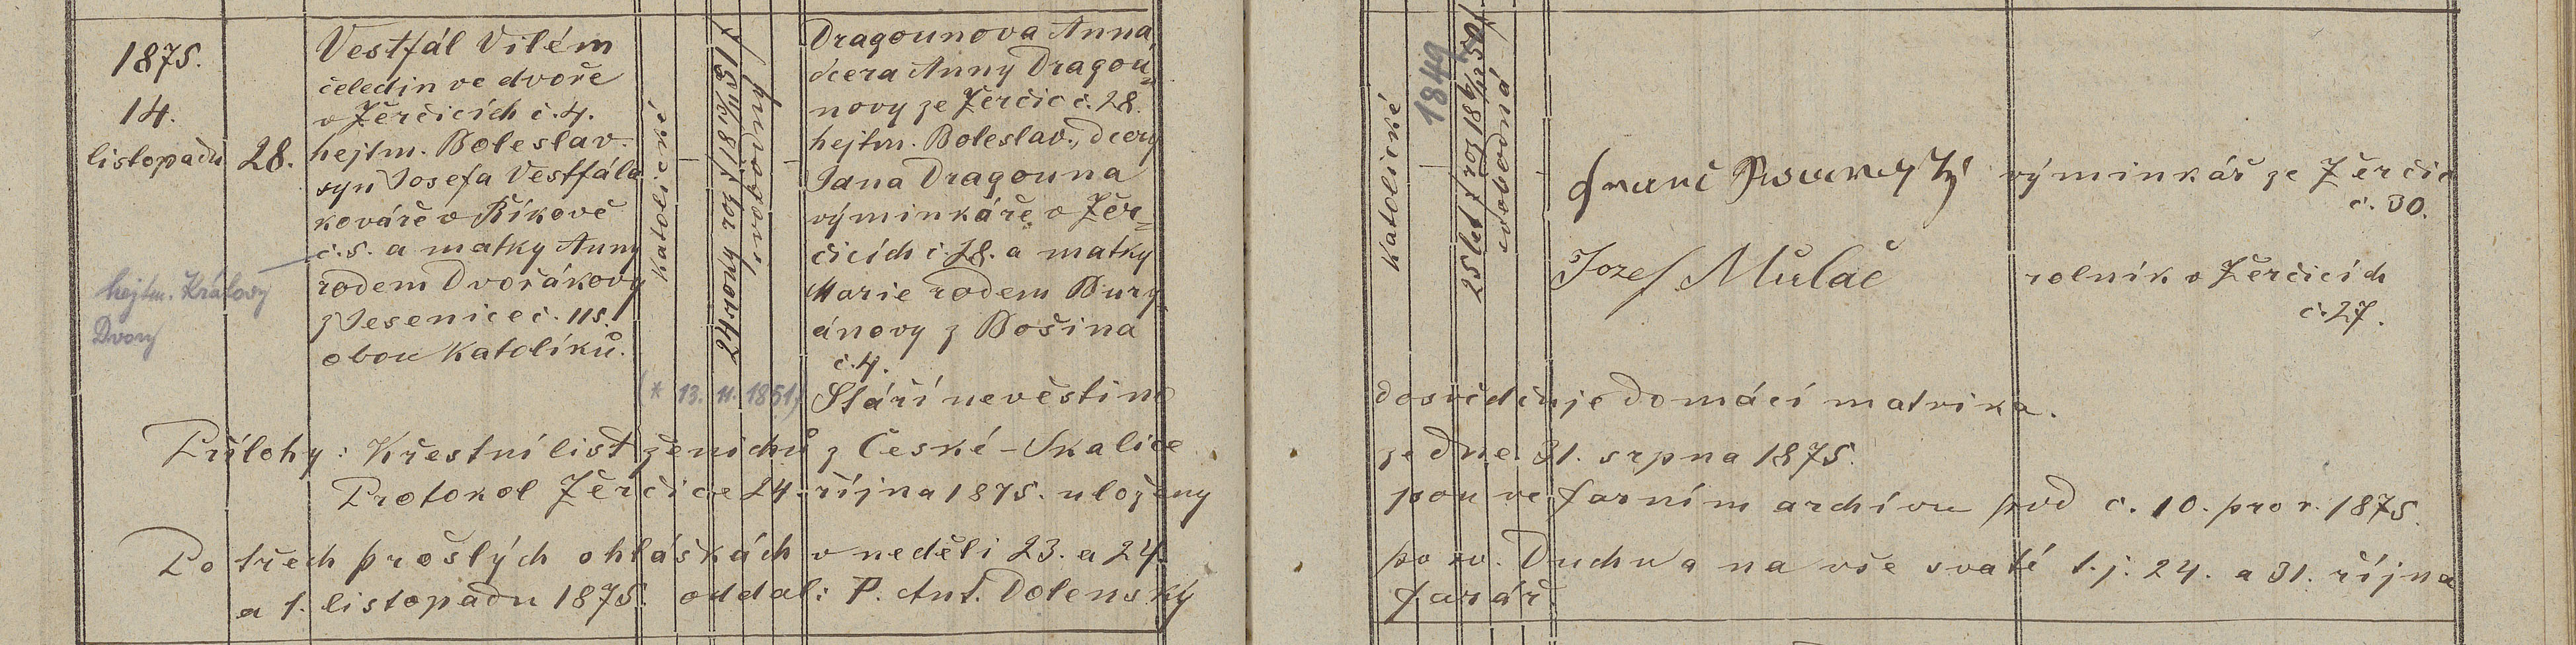 1875.
14.
listopadu
28.
Vestfál Vilém
čeledín ve dvoře
v Žerčicích č. 4.
hejtm. Boleslav.
syn Josefa Vestfála
kováře v Říkově
č. 5. a matky Anny
rodem Dvořákovy
z Jesenice č. 115.
obou katolíků.
hejtm. Králový
Dvory
katolické
24 roky
svobodný
(* 13. 11. 1851)
Dragounova Anna,
dcera Anny Dragou-
novy ze Žerčic č. 28.
hejtm. Boleslav., dcery
Jana Dragouna
výminkáře v Žer-
čicích č. 28. a matky
Marie rodem Bury
ánovy z Bošina
č. 4.
Katolické
1849
25 let
svobodná
Franc
výminkář ze Žerčic
č. 30.
Jozef Mulač
rolník v Žerčicích
č. 27.
Stáří nevěstino dosvědčuje domácí matrika.
Přílohy: Křestní list ženichů z České-Skalice ze dne 31. srpna 1875.
Protokol Žerčice 24. října 1875. uloženy jsou ve farním archívu pod č. 10. pro r. 1875.
Po třech prošlých ohláškách v neděli 23. a 24. po sv. Duchu a na vše svaté t. j. 24. a 31. října
a 1. listopadu 1875. oddal: P. Ant. Dolenský farář.